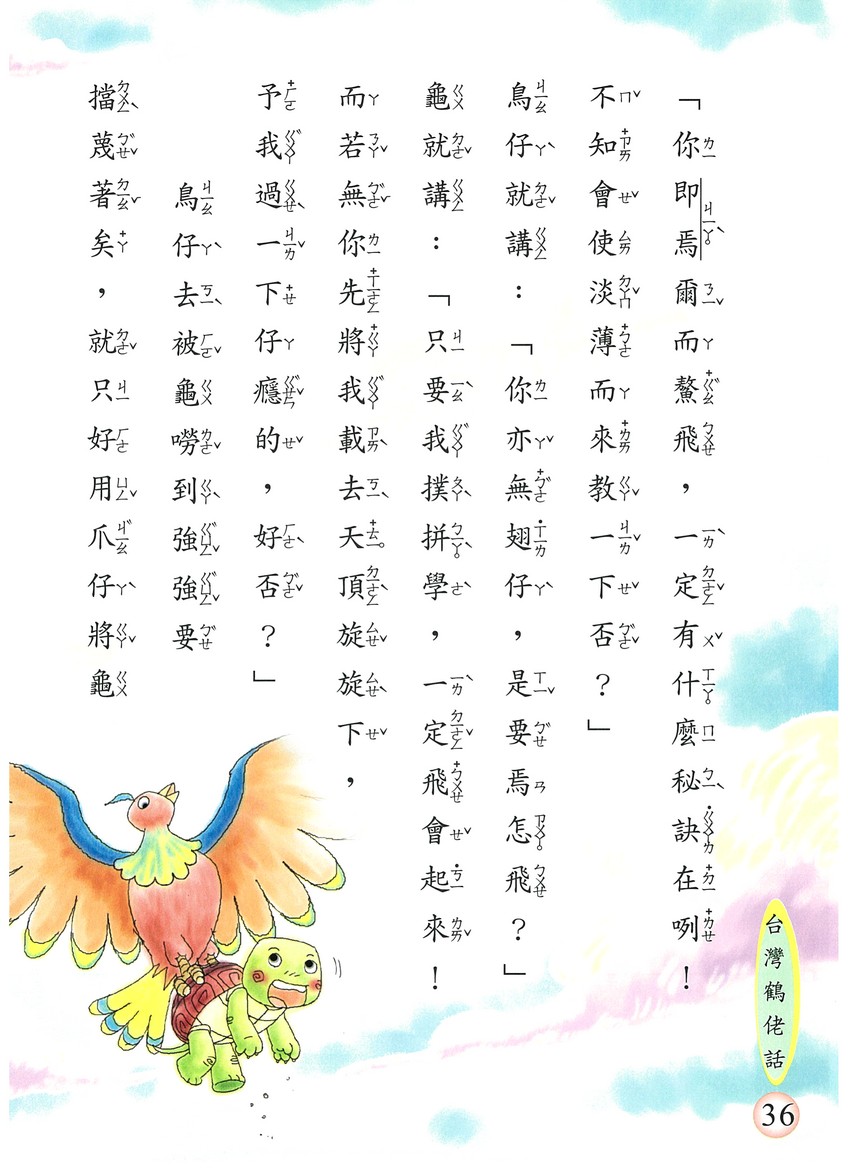 「你即焉爾而鰲飛，一定有什麼秘訣在咧！
不知會使淡薄而來教一下否？」
鳥仔就講：「你亦無翅仔，是要焉怎飛？」
龜就講：「只要我撲拼學，一定飛會起來！
而若無你先將我載去天頂旋旋下，
予我過一下仔癮的，好否？」
鳥仔去被龜嘮到強強要
擋蔑著矣，就只好用爪仔將龜
台灣鶴佬話
36